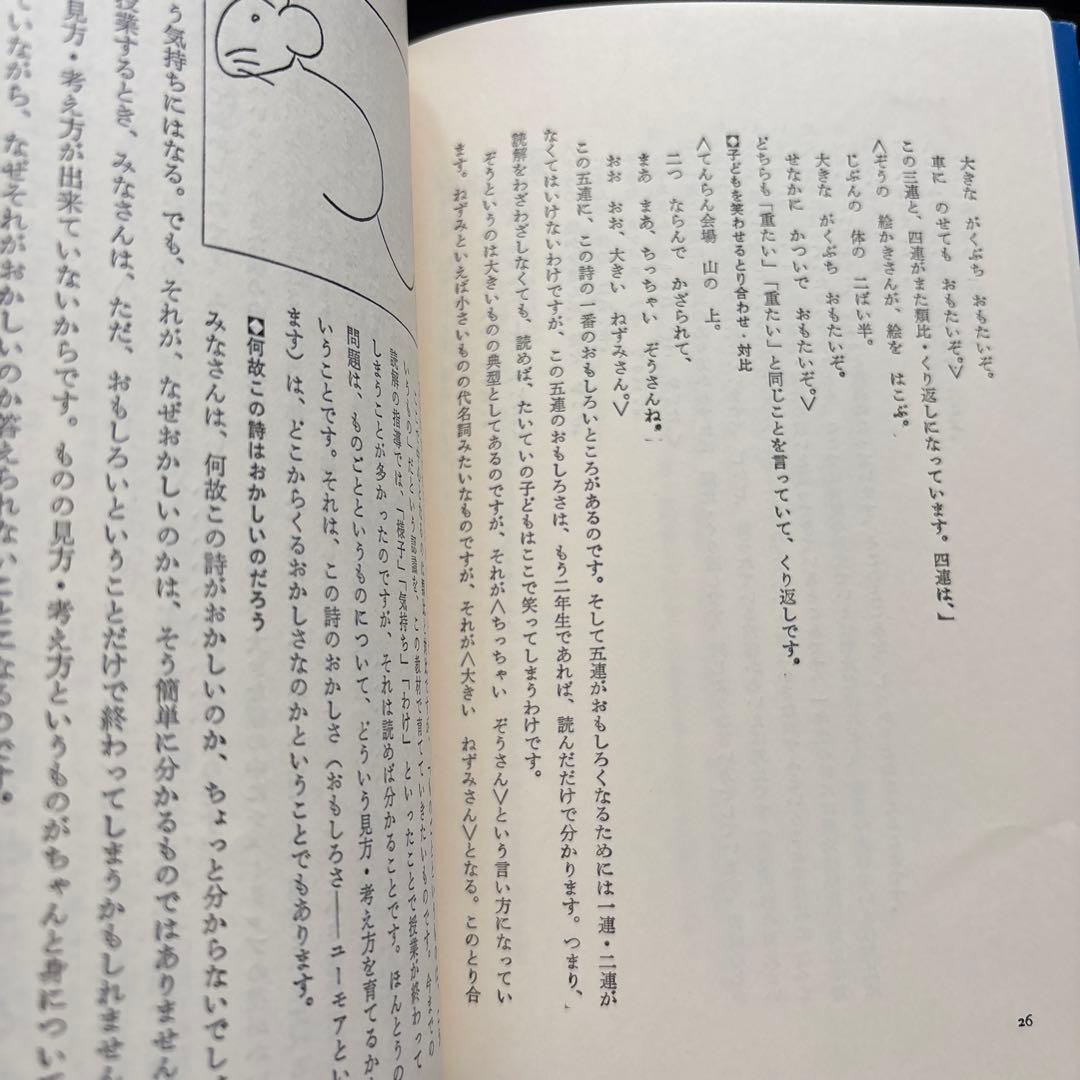 大きな　がくぶち　おもたいぞ。
車に　のせても　おもたいぞ。〉
この三連と、四連がまた類比・くり返しになっています。四連は、
〈ぞうの　絵かきさんが、絵を　はこぶ。
じぶんの　体の　二ばい半。
大きな　がくぶち　おもたいぞ。
せなかに　かついで　おもたいぞ。〉
どちらも「重たい」「重たい」と同じことを言っていて、くり返しです。
◆子どもを笑わせるとり合わせ・対比
〈てんらん会場　山の　上。
二つ　ならんで　かざられて、
まあ　まあ、ちっちゃい　ぞうさんね。
おお　おお、大きい　ねずみさん。〉
この五連に、この詩の一番のおもしろいところがあるのです。そして五連がおもしろくなるためには一連・二連が
なくてはいけないわけですが、この五連のおもしろさは、もう二年生であれば、読んだだけで分かります。つまり、
読解をわざわざしなくても、読めば、たいていの子どもはここで笑ってしまうわけです。
ぞうというのは大きいものの典型としてあるのですが、それが〈ちっちゃい　ぞうさん〉という言い方になってい
ます。ねずみといえば小さいものの代名詞みたいなものですが、それが〈大きい　ねずみさん〉となる。このとり合
26
いうもの」だという認識を、この教材で育てていきたいものです。今までの
読解の指導では、「様子」「気持ち」「わけ」といったことで授業が終わって
しまうことが多かったのですが、それは読めば分かることです。ほんとうの
問題は、ものごとというものについて、どういう見方・考え方を育てるか
いうことです。それは、この詩のおかしさ（おもしろさ――ユーモアとい
ます）は、どこからくるおかしさなのかということでもあります。
◆何故この詩はおかしいのだろう
みなさんは、何故この詩がおかしいのか、ちょっと分からないでし
う気持ちにはなる。でも、それが、なぜおかしいのかは、そう簡単に分かるものではありません
授業するとき、みなさんは、ただ、おもしろいということだけで終わってしまうかもしれません
見方・考え方が出来ていないからです。ものの見方・考え方というものがちゃんと身につい
ていながら、なぜそれがおかしいのか答えられないことになるのです。